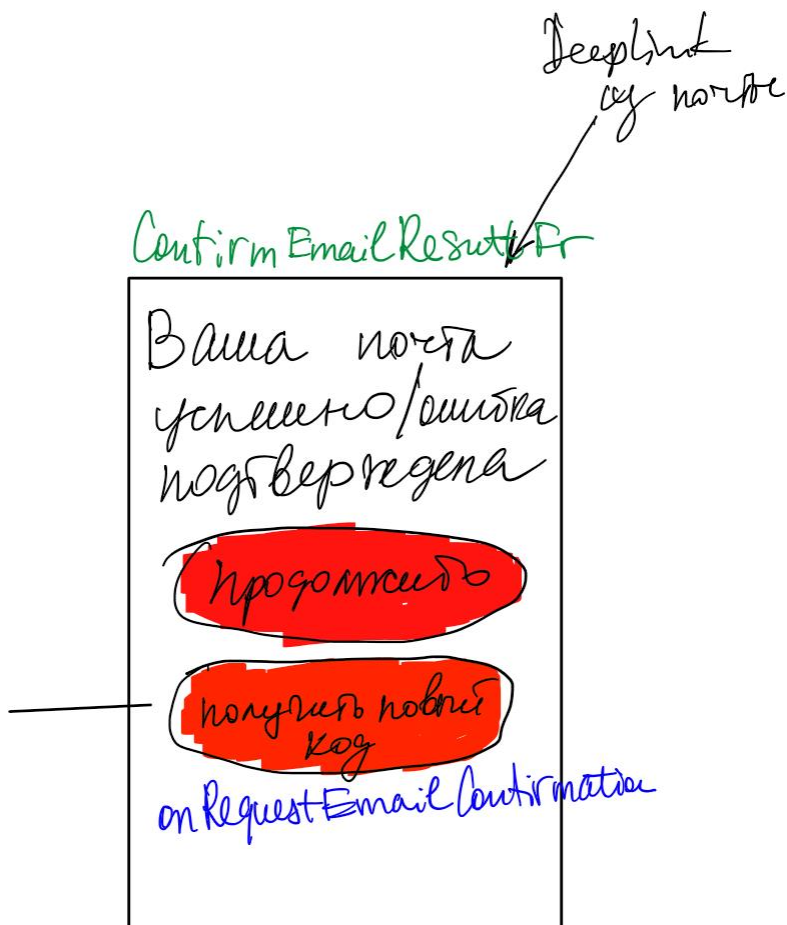 Deeplink
из почты
ConfirmEmailResultFr
Ваша почта
успешно/ошибка
подтверждена
продолжить
получить новый
код
onRequestEmailConfirmation